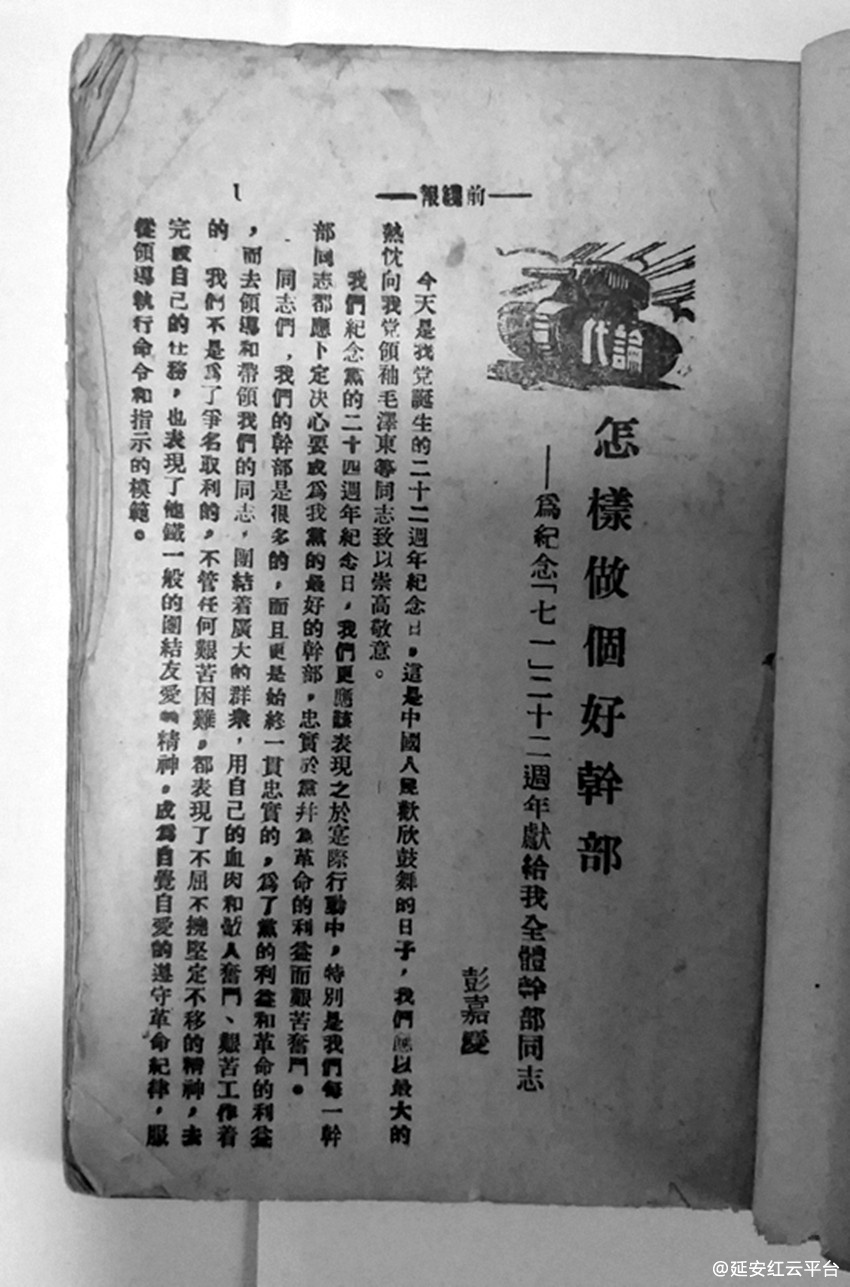 ——前綫報——
1
論
怎樣做個好幹部
——爲紀念「七一」二十二週年獻給我全體幹部同志
彭嘉慶
今天是我党誕生的二十二週年紀念日，這是中國人民歡欣鼓舞的日子，我們應以最大的
熱忱向我党領袖毛澤東等同志致以崇高敬意。
我們紀念黨的二十四週年紀念日，我們更應該表現之於實際行動中，特別是我們每一幹
部同志都應下定决心要成爲我黨的最好的幹部，忠實於黨并爲革命的利益而艱苦奮鬥。
同志們，我們的幹部是很多的，而且更是始終一貫忠實的，爲了黨的利益和革命的利益
，而去領導和帶領我們的同志，團結着廣大的群衆，用自己的血肉和敵人奮鬥、艱苦工作着
的　我們不是爲了爭名取利的，不管任何艱苦困難，都表現了不屈不撓堅定不移的精神，去
完成自己的任務，也表現了他鐵一般的團結友愛的精神，成爲自覺自愛的遵守革命紀律，服
從領導執行命令和指示的模範。
@延安红云平台